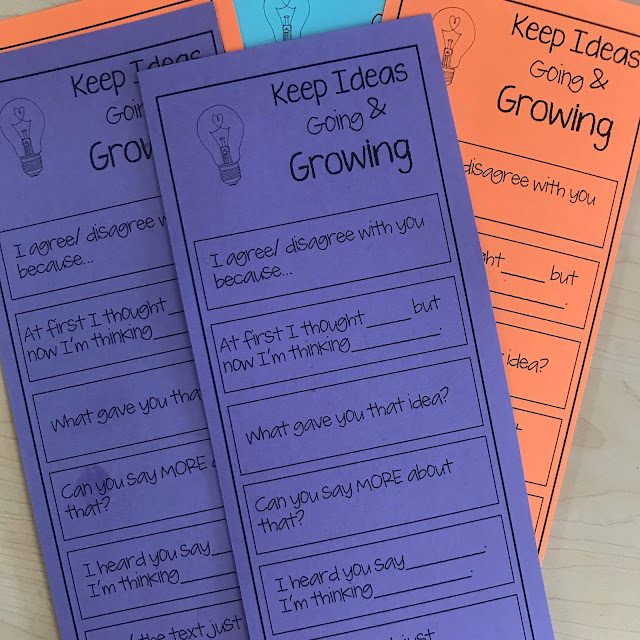 Keep Ideas
Going &
Growing
I agree/ disagree with you
because...
At first I thought____ but
now I'm thinking__________.
What gave you that idea?
Can you say MORE about
that?
I heard you say__________.
I'm thinking__________.
just
Keep Ideas
Going
Grow
I agree/ disagree w
because...
At first I thought
now I'm thinking
What gave you tha
Can you say MORE
that?
I heard you say
I'm thinking
the text just
Keep Ideas
Going &
Growing
disagree with you
ght____ but
.
idea?